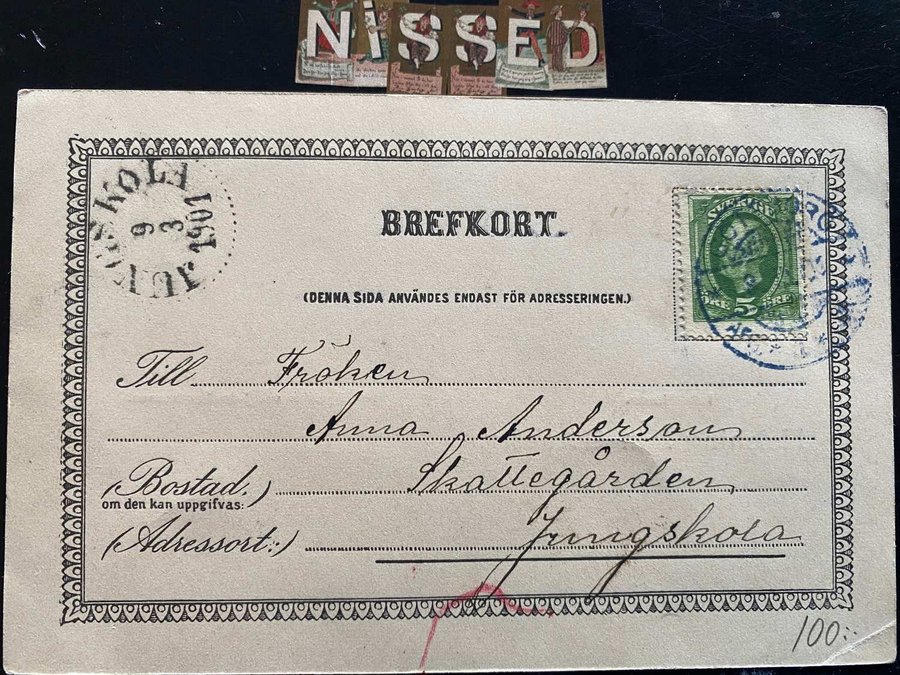 NISSED
JUNGSKOLA
9
3
1901
BREFKORT.
SVERIGE
ÖRE 5 ÖRE
(DENNA SIDA ANVÄNDES ENDAST FÖR ADRESSERINGEN.)
Till Fröken
Anna Anderson
(Bostad.) Skattegården,
om den kan uppgifvas:
(Adressort:) Jungskola
100:-